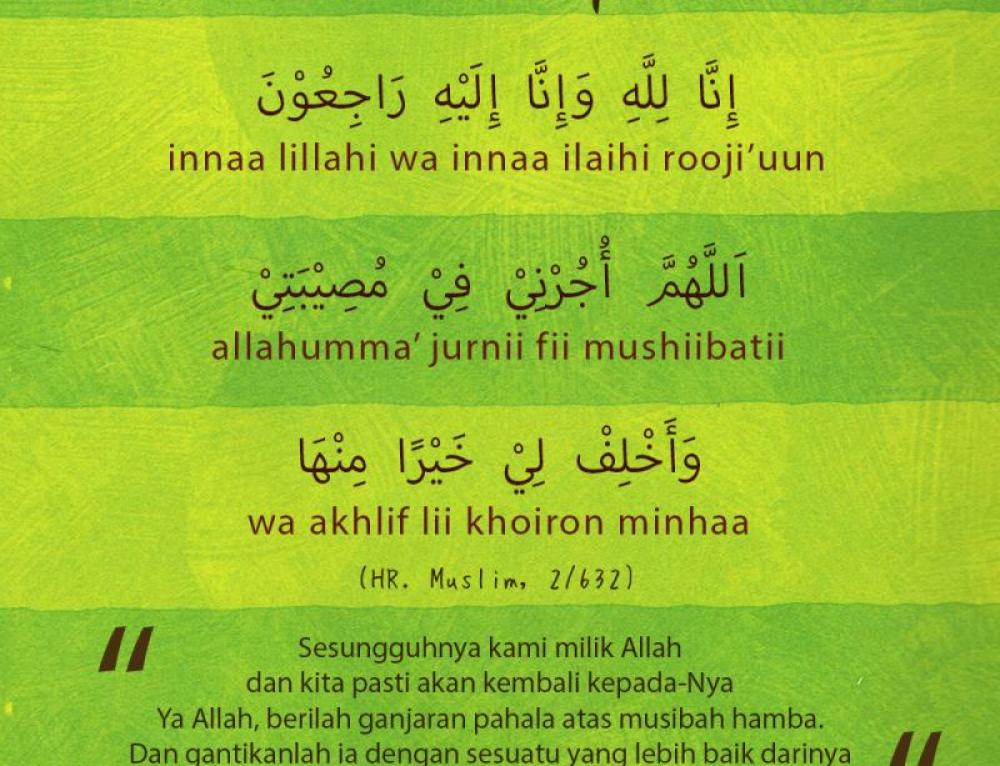 إِنَّا لِلَّهِ وَإِنَّا إِلَيْهِ رَاجِعُوْنَ
innaa lillahi wa innaa ilaihi rooji’uun
اَللَّهُمَّ أُجُرْنِيْ فِيْ مُصِيْبَتِيْ
allahumma’ jurnii fii mushiibatii
وَأَخْلِفْ لِيْ خَيْرًا مِنْهَا
wa akhlif lii khoiron minhaa
(HR. Muslim, 2/632)
“ Sesungguhnya kami milik Allah
dan kita pasti akan kembali kepada-Nya
Ya Allah, berilah ganjaran pahala atas musibah hamba.
Dan gantikanlah ia dengan sesuatu yang lebih baik darinya “